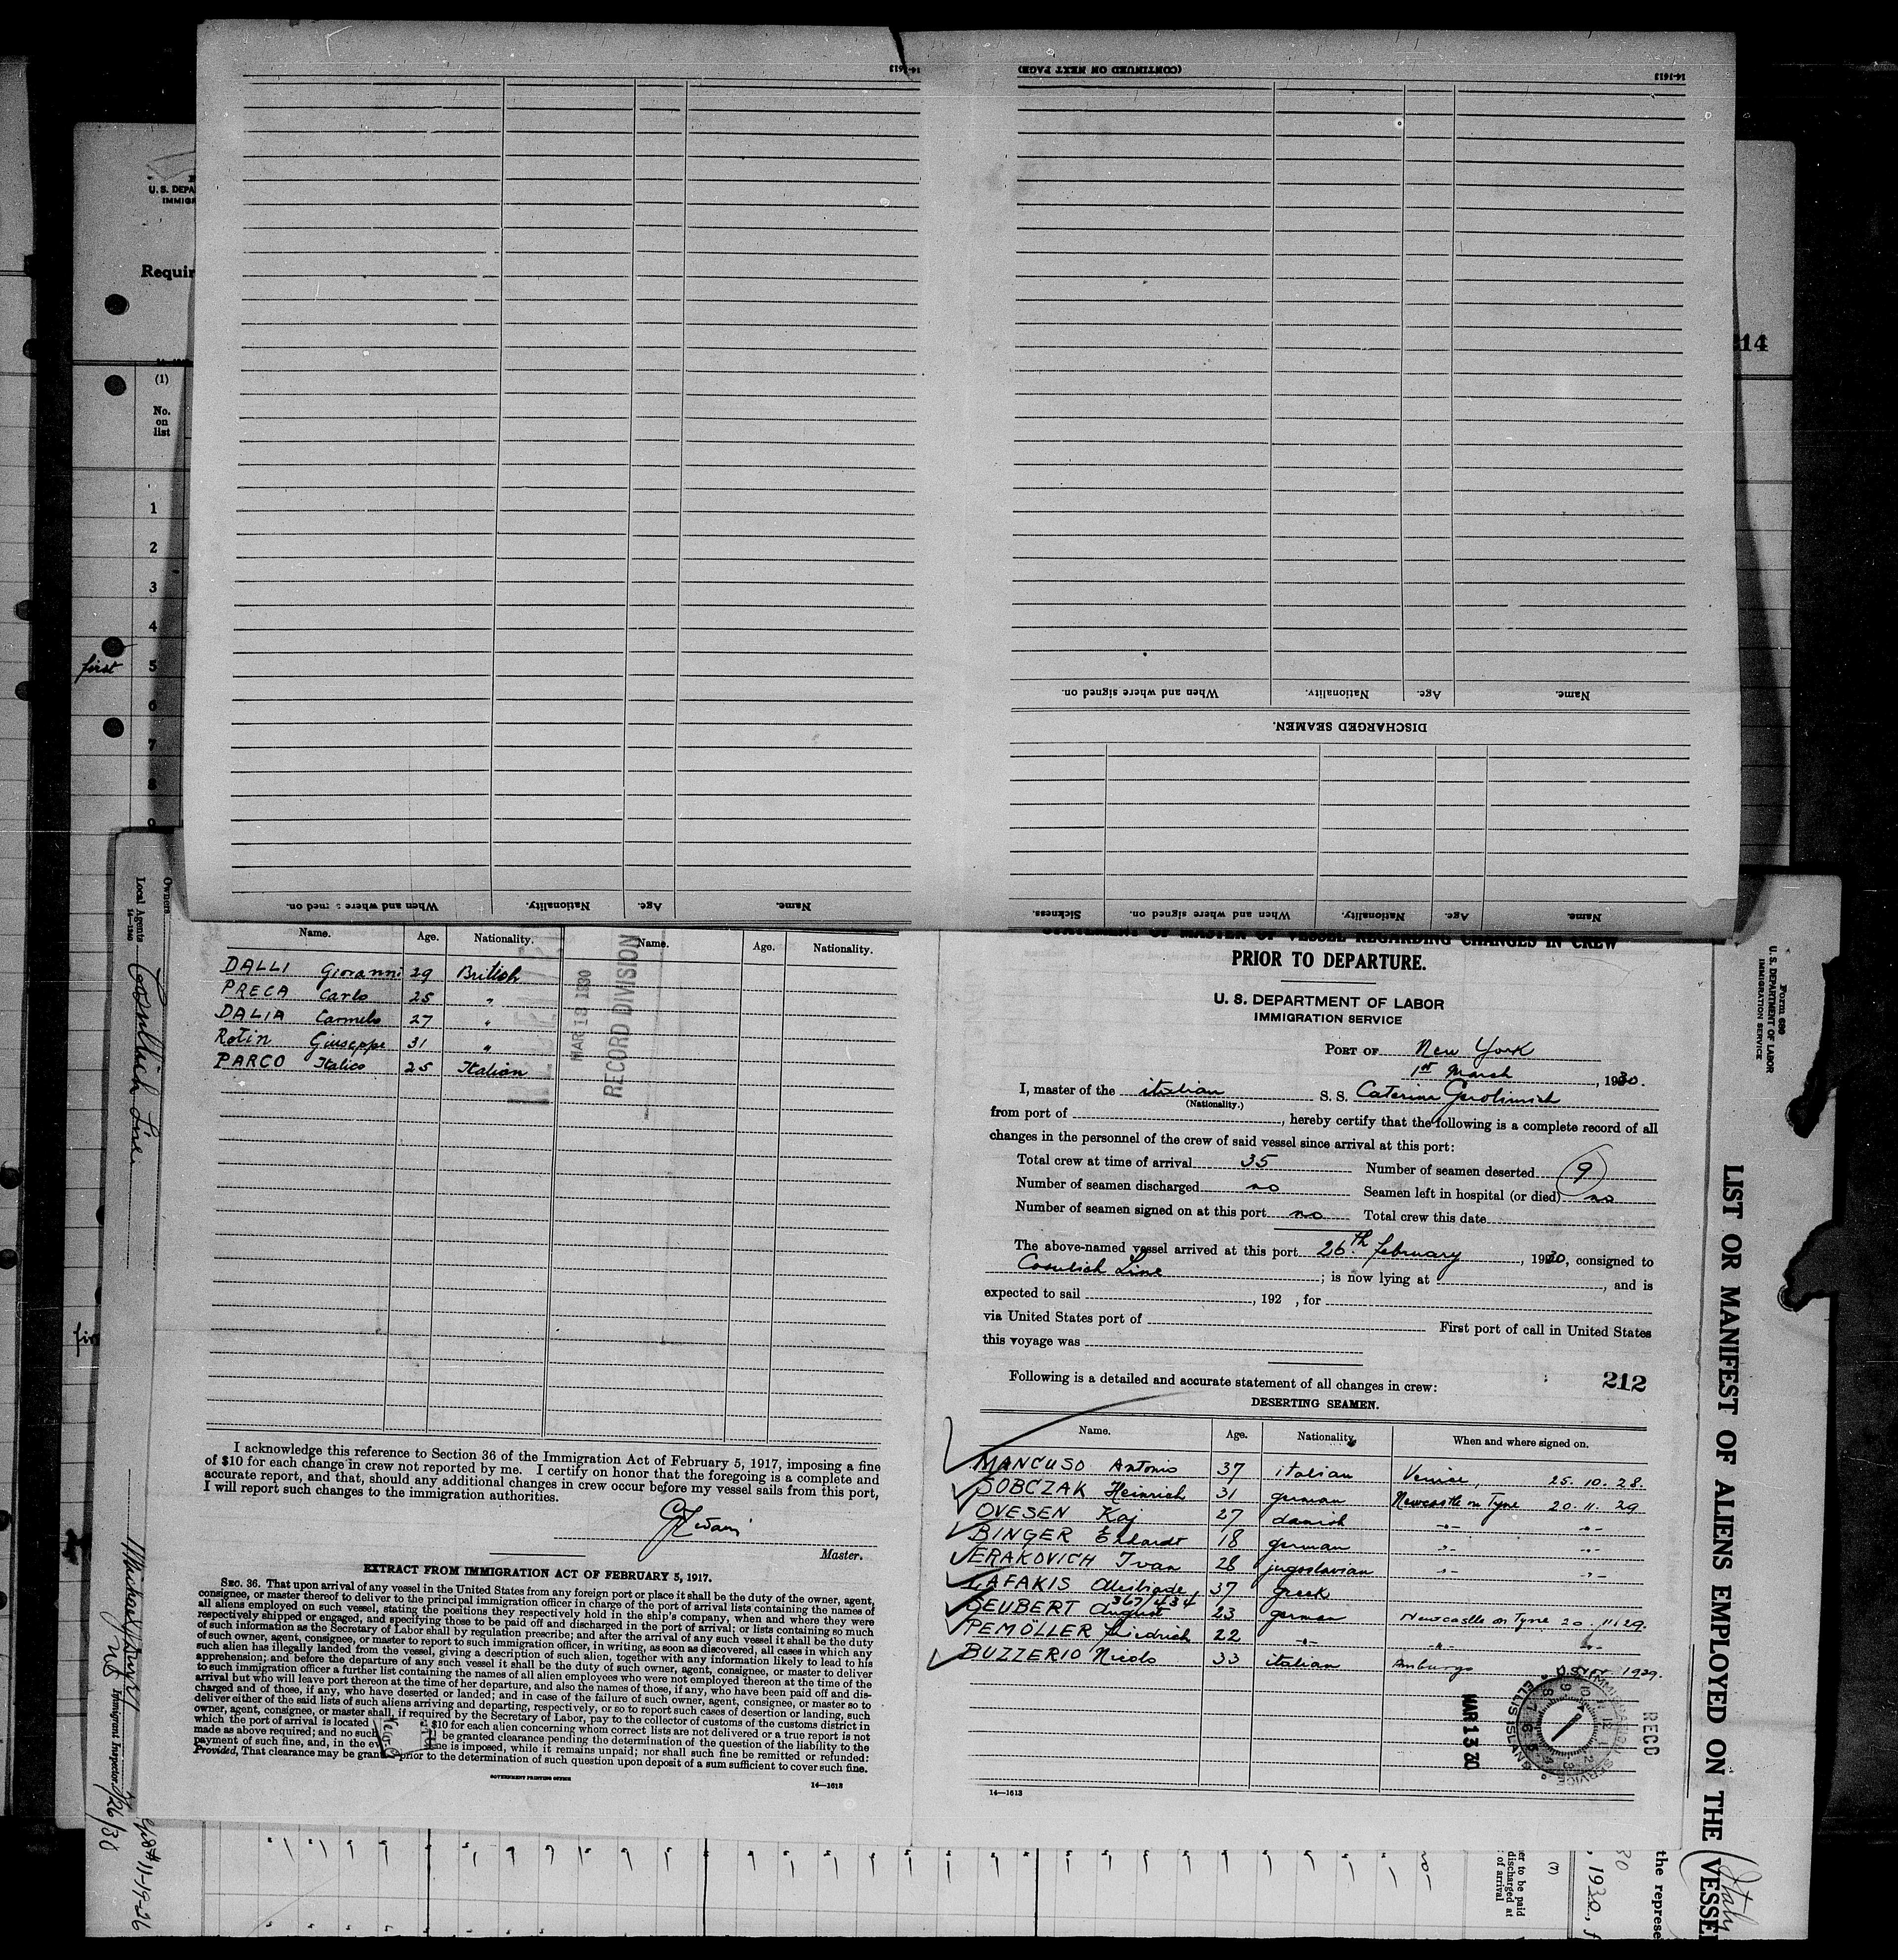 14-1613
(CONTINUED ON NEXT PAGE)
14-1613
When and where signed on.
Nationality.
Age.
Name.
DISCHARGED SEAMEN.
Name.
Age.
Nationality.
When and where signed on.
Name.
Age.
Nationality.
When and where signed on.
Sickness.
U. S. DEPA
IMMIGR
Requir
(1)
No.
on
list
1
2
3
4
first 5
6
7
8
9
14
Owners
Local Agents Cosulich Line.
14-1240
Immigrant Inspector
Name. Age. Nationality. Name. Age. Nationality.
DALLI Giovanni 29 British
PRECA Carlo 25 "
DALIA Carmelo 27 "
Rotin Giuseppe 31 "
PARCO Italico 25 Italian
MAR 13 1930
RECORD DIVISION
I acknowledge this reference to Section 36 of the Immigration Act of February 5, 1917, imposing a fine
of $10 for each change in crew not reported by me. I certify on honor that the foregoing is a complete and
accurate report, and that, should any additional changes in crew occur before my vessel sails from this port,
I will report such changes to the immigration authorities.
Master.
EXTRACT FROM IMMIGRATION ACT OF FEBRUARY 5, 1917.
SEC. 36. That upon arrival of any vessel in the United States from any foreign port or place it shall be the duty of the owner, agent,
consignee, or master thereof to deliver to the principal immigration officer in charge of the port of arrival lists containing the names of
all aliens employed on such vessel, stating the positions they respectively hold in the ship's company, when and where they were
respectively shipped or engaged, and specifying those to be paid off and discharged in the port of arrival; or lists containing so much
of such information as the Secretary of Labor shall by regulation prescribe; and after the arrival of any such vessel it shall be the duty
of such owner, agent, consignee, or master to report to such immigration officer, in writing, as soon as discovered, all cases in which any
such alien has illegally landed from the vessel, giving a description of such alien, together with any information likely to lead to his
apprehension; and before the departure of any such vessel it shall be the duty of such owner, agent, consignee, or master to deliver
to such immigration officer a further list containing the names of all alien employees who were not employed thereon at the time of the
arrival but who will leave port thereon at the time of her departure, and also the names of those, if any, who have been paid off and dis-
charged and of those, if any, who have deserted or landed; and in case of the failure of such owner, agent, consignee, or master so to
deliver either of the said lists of such aliens arriving and departing, respectively, or so to report such cases of desertion or landing, such
owner, agent, consignee, or master shall, if required by the Secretary of Labor, pay to the collector of customs of the customs district in
which the port of arrival is located $10 for each alien concerning whom correct lists are not delivered or a true report is not
made as above required; and no such be granted clearance pending the determination of the question of the liability to the
payment of such fine, and, in the ev ne is imposed, while it remains unpaid; nor shall such fine be remitted or refunded:
Provided, That clearance may be grant prior to the determination of such question upon deposit of a sum sufficient to cover such fine.
GOVERNMENT PRINTING OFFICE
14—1613
STATEMENT OF MASTER OF VESSEL REGARDING CHANGES IN CREW
PRIOR TO DEPARTURE.
U. S. DEPARTMENT OF LABOR
IMMIGRATION SERVICE
PORT OF New York
1st March, 1930.
I, master of the italian S. S. Caterina Gerolimich
(Nationality.)
from port of , hereby certify that the following is a complete record of all
changes in the personnel of the crew of said vessel since arrival at this port:
Total crew at time of arrival 35 Number of seamen deserted 9
Number of seamen discharged no Seamen left in hospital (or died) no
Number of seamen signed on at this port no Total crew this date
The above-named vessel arrived at this port 26th february, 1930, consigned to
Cosulich Line ; is now lying at , and is
expected to sail , 192 , for
via United States port of First port of call in United States
this voyage was
Following is a detailed and accurate statement of all changes in crew: 212
DESERTING SEAMEN.
Name. Age. Nationality. When and where signed on.
MANCUSO Antonio 37 italian Venice, 25.10.28.
SOBCZAK Heinrich 31 german Newcastle on Tyne 20.11.29
OVESEN Kaj 27 danish -"- -"-
BINGER Erhardt 18 german -"- -"-
ERAKOVICH Ivan 28 jugoslavian -"- -"-
LAFAKIS Alcibiade, 37 greek
367/434
SEUBERT August 23 german Newcastle on Tyne 20.11.29.
PEMÖLLER Friedrich 22 -"- -"- -"-
BUZZERIO Nicolo 33 italian Amburgo 1929.
MAR 13 30
ELLIS ISLAND
RECD
14—1613
Form 689
U. S. DEPARTMENT OF LABOR
IMMIGRATION SERVICE
LIST OR MANIFEST OF ALIENS EMPLOYED ON THE VESSE
Italy
the represe
, 1930, f
(7)
er to be paid
discharged at
of arrival